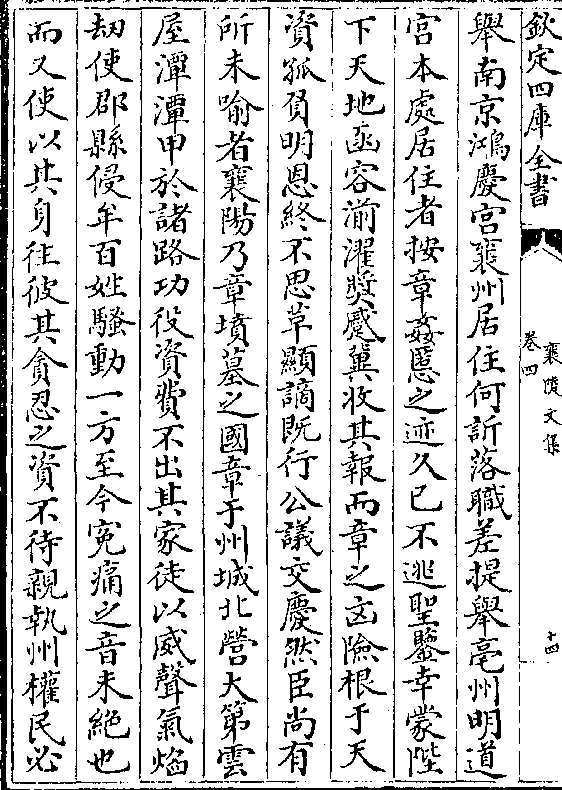 欽定四庫全書
襄陵文集
卷四
十四
舉南京鴻慶宮襄州居住何訢落職差提舉亳州明道
宮本處居住者按章姦慝之迹久已不逃聖鑒幸蒙陛
下天地函容湔濯奬蹙冀收其報而章之凶險根于天
資孤負明恩終不思革顯謫既行公議交慶然臣尚有
所未喻者襄陽乃章墳墓之國章于州城北營大第雲
屋潭潭甲於諸路功役資費不出其家徒以威聲氣焰
刼使郡縣侵牟百姓騷動一方至今寃痛之音未絕也
而又使以其身往彼其貪忍之資不待親執州權民必